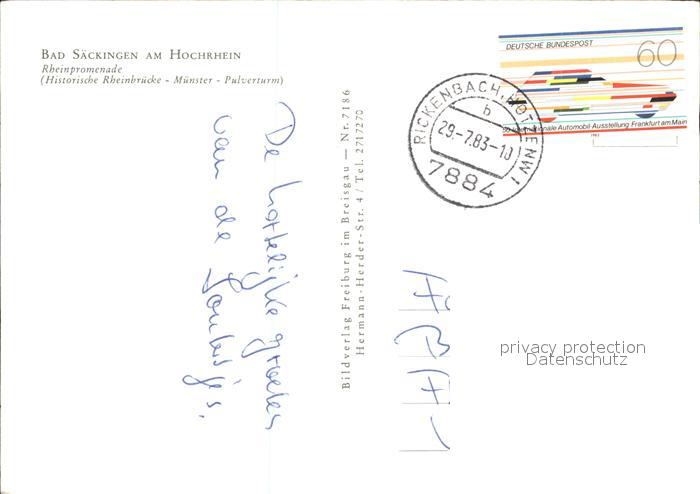 BAD SÄCKINGEN AM HOCHRHEIN
Rheinpromenade
(Historische Rheinbrücke - Münster - Pulverturm)
De hartelijke groeten
van de
Bildverlag Freiburg im Breisgau — Nr. 7186
Hermann-Herder-Str. 4 / Tel. 2717270
RICKENBACH, HOTZENW
b
29.-7.83-10
7884
DEUTSCHE BUNDESPOST
60
50. Internationale Automobil-Ausstellung Frankfurt am Main
1983
privacy protection
Datenschutz